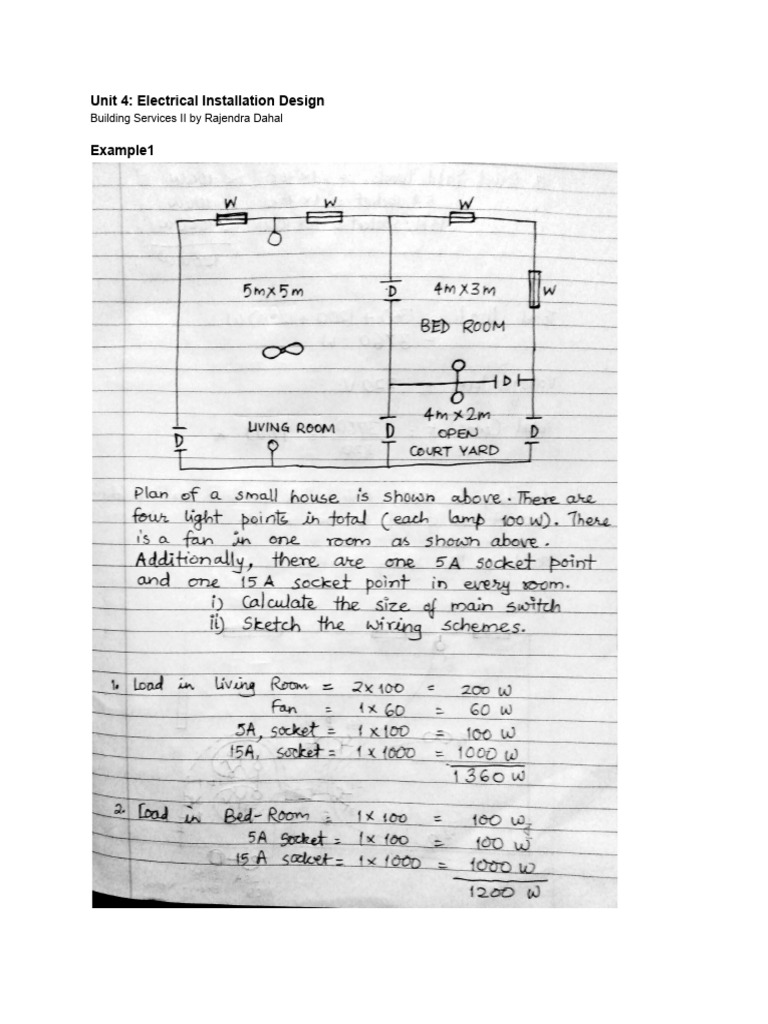 Unit 4: Electrical Installation Design
Building Services II by Rajendra Dahal
Example1
W W W
5m×5m D 4m×3m W
BED ROOM
D
4m×2m
D LIVING ROOM D OPEN D
COURT YARD
Plan of a small house is shown above. There are
four light points in total (each lamp 100 W). There
is a fan in one room as shown above.
Additionally, there are one 5A socket point
and one 15 A socket point in every room.
i) Calculate the size of main switch
ii) Sketch the wiring schemes.
1. Load in living Room = 2×100 = 200 W
Fan = 1×60 = 60 W
5A, socket = 1×100 = 100 W
15A, socket = 1×1000 = 1000 W
1360 W
2. Load in Bed-Room = 1×100 = 100 W
5A Socket = 1×100 = 100 W
15 A socket = 1×1000 = 1000 W
1200 W